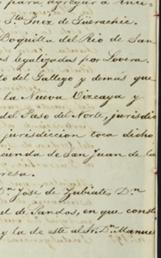 para agregar a
Sta. Ynez de Guerachic.
Boquilla del Rio de San
legalizadas por Lovera.
to del Gallego y demás que
la Nueva Vizcaya y
del Paso del Norte, jurisdic
jurisdiccion toca dicho
cienda de San Juan de la
José de Zubiate Dn.
el de Santos, en que const
y la de este al Sr. Dn. Manuel